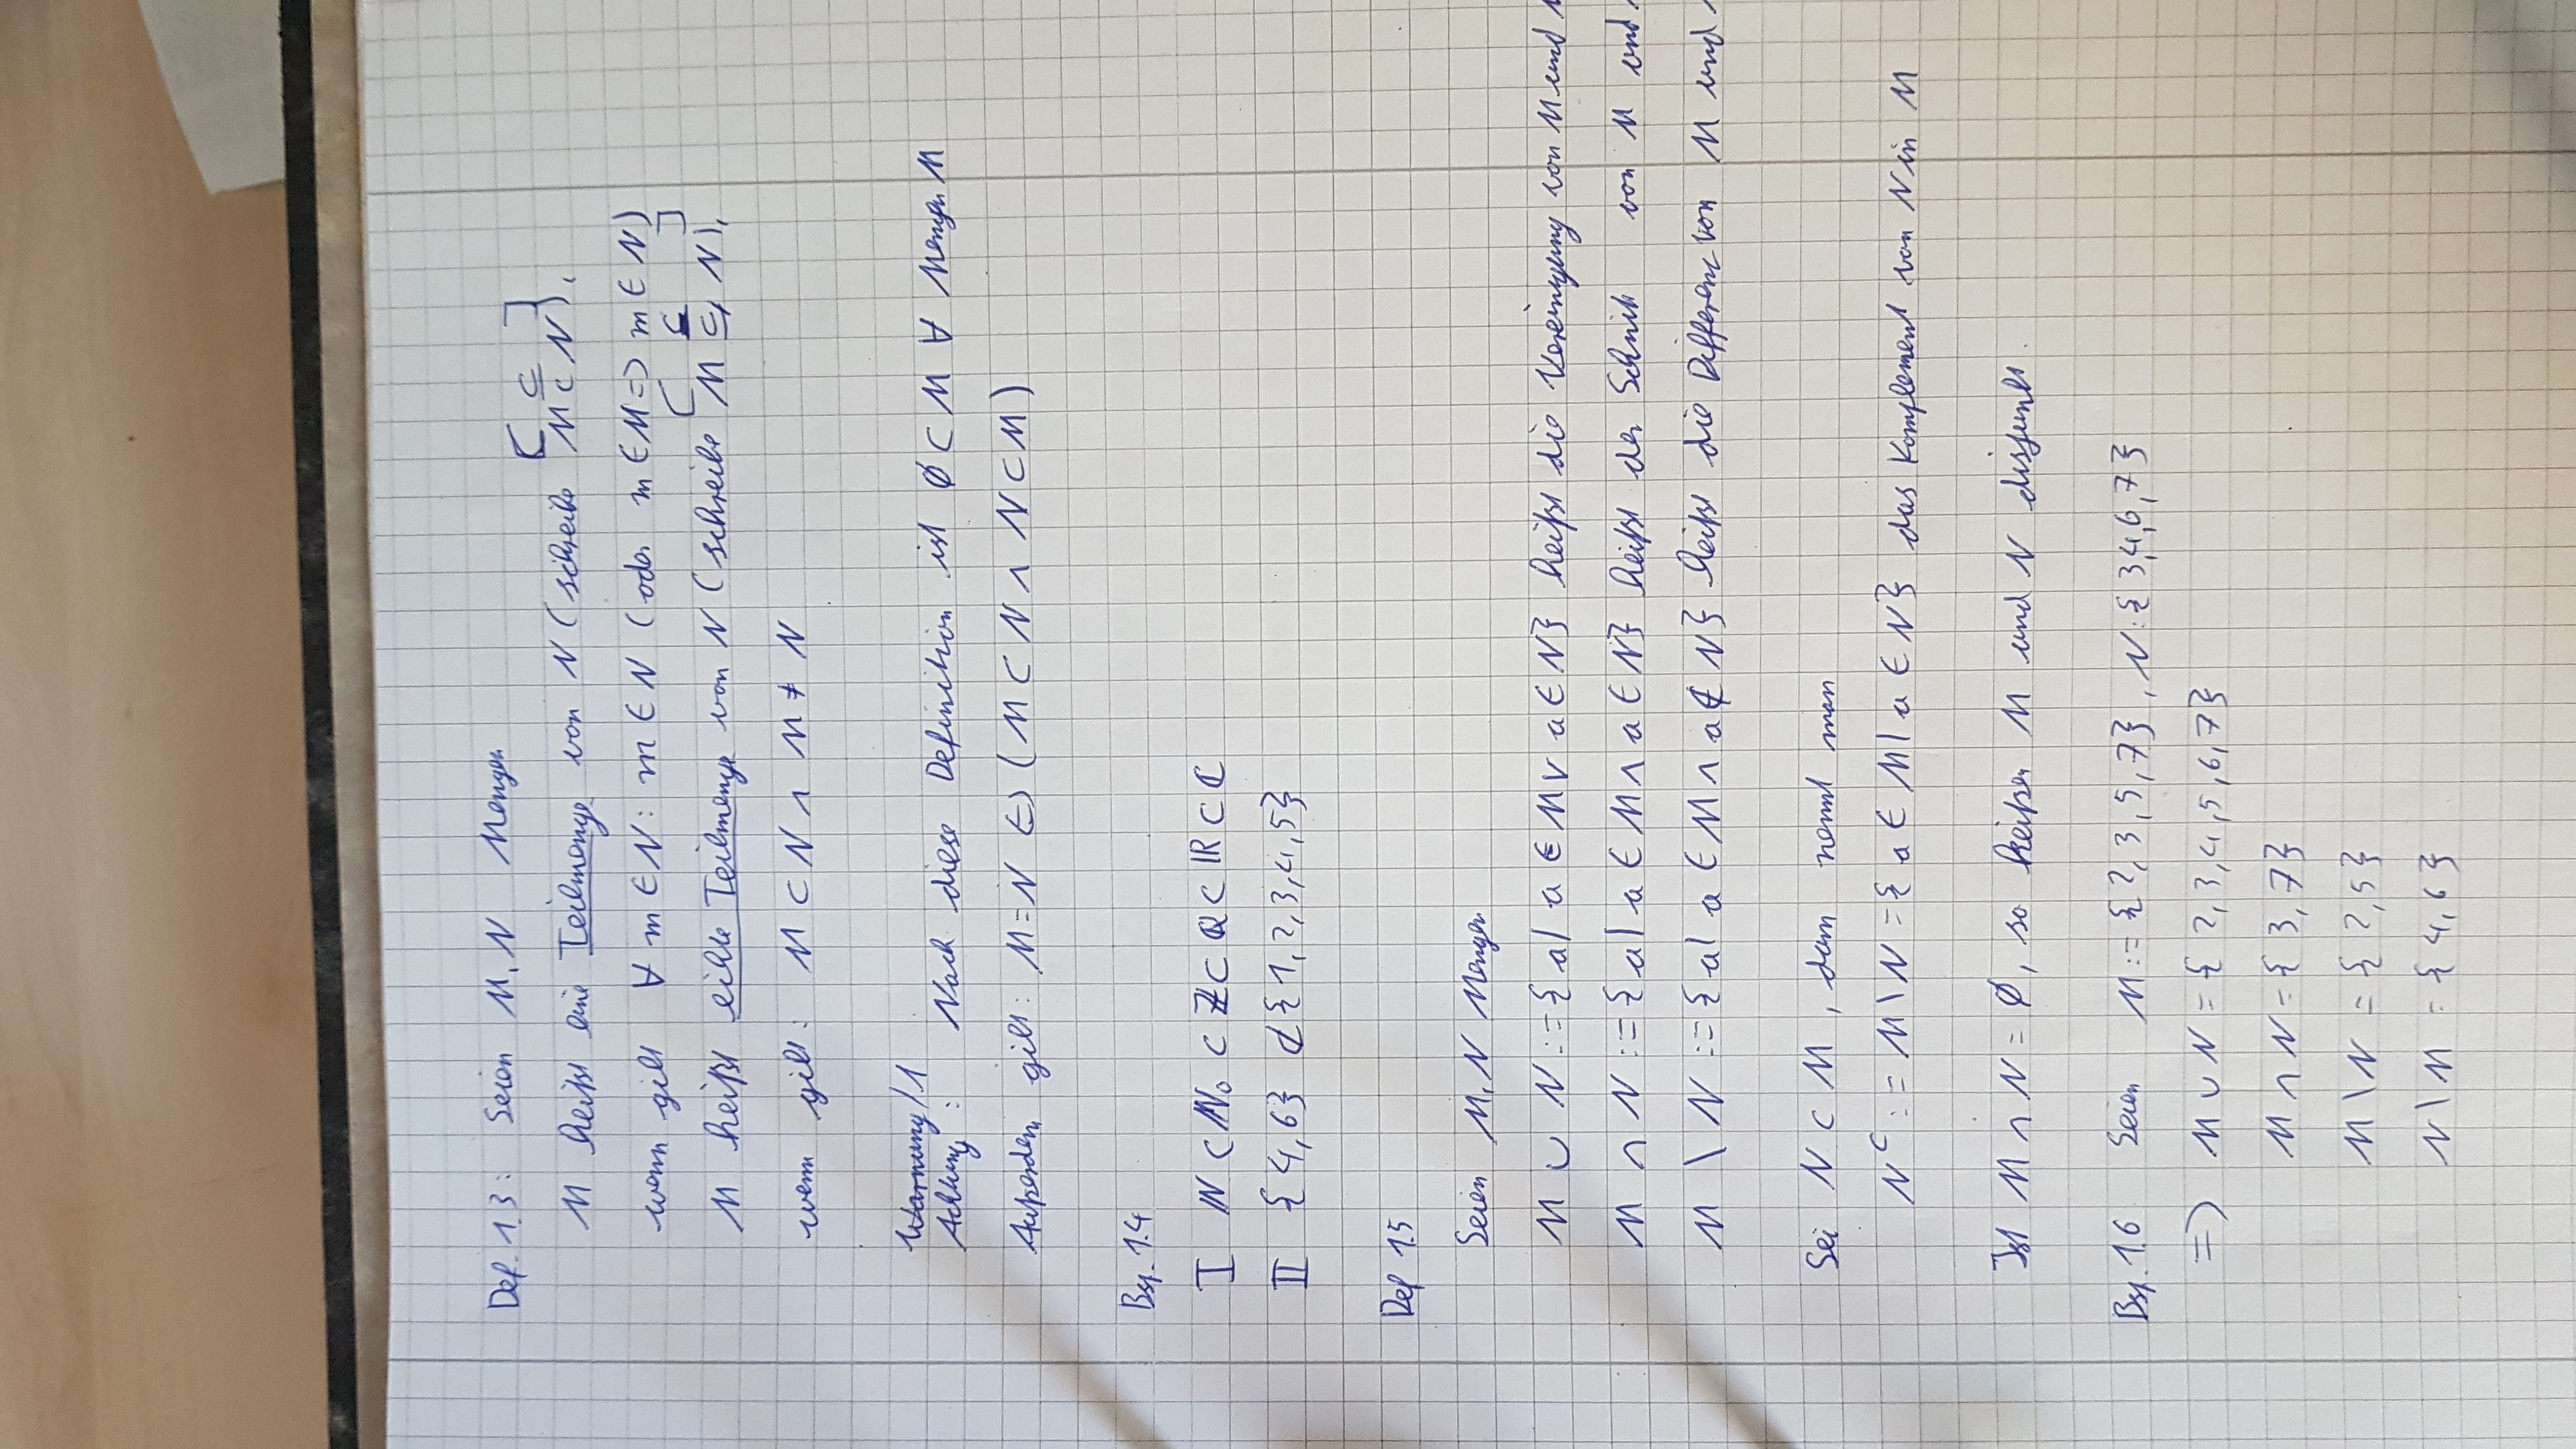 Def. 1.3: Seien M, N Mengen
[ ⊆ ]
M heißt eine Teilmenge von N (schreibe M ⊂ N),
wenn gilt ∀ m ∈ N: m ∈ N (oder m ∈ M => m ∈ N)
[ ⊂ ]
M heißt echte Teilmenge von N (schreibe M ⊊ N),
wenn gilt: M ⊂ N ∧ M ≠ N
Warnung/1
Achtung: Nach diese Definition ist ∅ ⊂ M ∀ Mengen M
Außerdem gilt: M = N <=> (M ⊂ N ∧ N ⊂ M)
Bsp. 1.4
I ℕ ⊂ ℕ₀ ⊂ ℤ ⊂ ℚ ⊂ ℝ ⊂ ℂ
II {4,6} ⊄ {1,2,3,4,5}
Def 1.5
Seien M, N Mengen
M ∪ N := {a| a ∈ M ∨ a ∈ N} heißt die Vereinigung von M und
M ∩ N := {a| a ∈ M ∧ a ∈ N} heißt der Schnitt von M und
M \ N := {a| a ∈ M ∧ a ∉ N} heißt die Differenz von M und
Sei N ⊂ M, dann nennt man
Nᶜ := M \ N = {a ∈ M| a ∈ N} das Komplement von N in M
Ist M ∩ N = ∅, so heißen M und N disjunkt.
Bsp. 1.6 Seien M := {2,3,5,7}, N: {3,4,6,7}
=> M ∪ N = {2,3,4,5,6,7}
M ∩ N = {3,7}
M \ N = {2,5}
N \ M = {4,6}